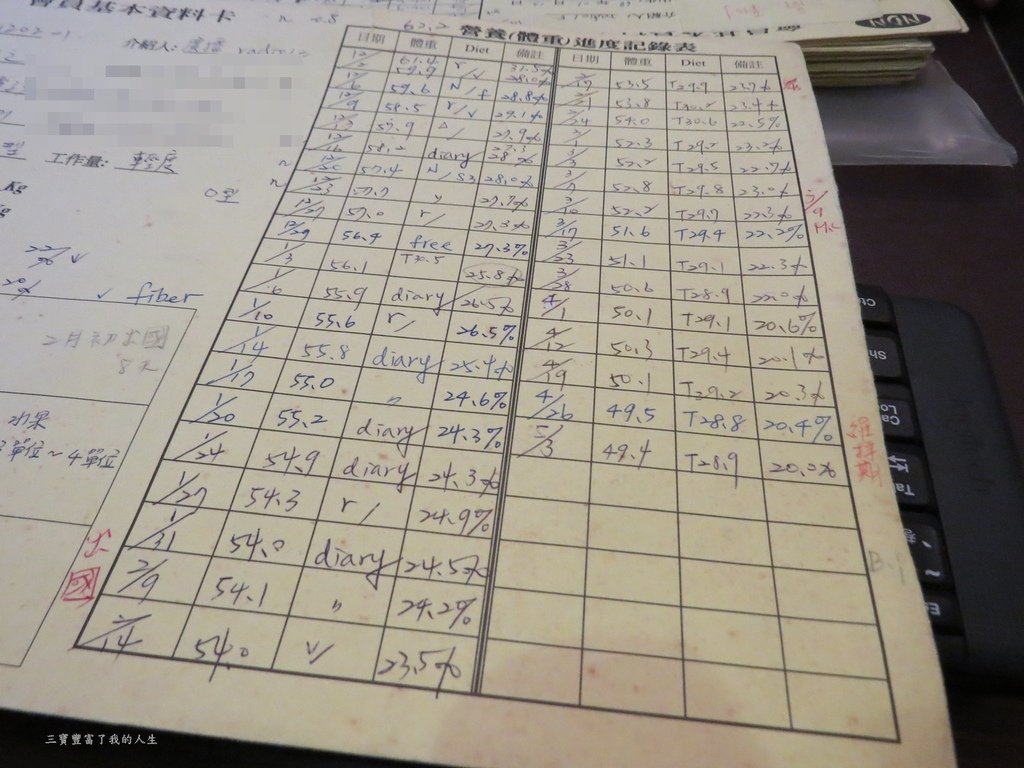 會員基本資料卡
介紹人:
工作量: 輕度
O型
fiber
2月初出國
8天
水果
單位~4單位
出
國
62.2
營養(體重)進度記錄表
日期 體重 Diet 備註
61.4 r
59.9
12/6 59.6 N/f 28.8%
12/9 58.5 r/v 29.1%
57.9 27.9%
12/16 58.2 diary 28.%
57.4 N/S3 28.0%
12/23 57.7 〃 27.7%
12/27 57.0 r/ 27.3%
12/29 56.4 free 27.3%
1/3 56.1 T30.5 25.8%
1/6 55.9 diary 26.5%
1/10 55.6 r/ 26.5%
1/14 55.8 diary 25.4%
1/17 55.0 〃 24.6%
1/20 55.2 diary 24.3%
1/24 54.9 diary 24.3%
1/27 54.3 r/ 24.9%
1/31 54.0 diary 24.5%
2/9 54.1 〃 24.2%
2/14 54.0 v/ 23.5%
日期 體重 Diet 備註
2/19 53.5 T29.9 23.7%
53.8 T30.2 23.4%
2/24 54.0 T30.6 22.5%
3/1 52.3 T29.2 23.2%
3/3 52.2 T29.5 22.7%
3/7 52.8 T29.8 23.0%
3/10 52.2 T29.7 22.3%
3/17 51.6 T29.4 22.2%
3/23 51.1 T29.1 22.3%
3/28 50.6 T28.9 22.0%
4/1 50.1 T29.1 20.6%
4/12 50.3 T29.4 20.1%
4/19 50.1 T29.2 20.3%
4/26 49.5 T28.8 20.4%
5/3 49.4 T28.9 20.2%
3/9
MC
維持期
NDN
三寶豐富了我的人生